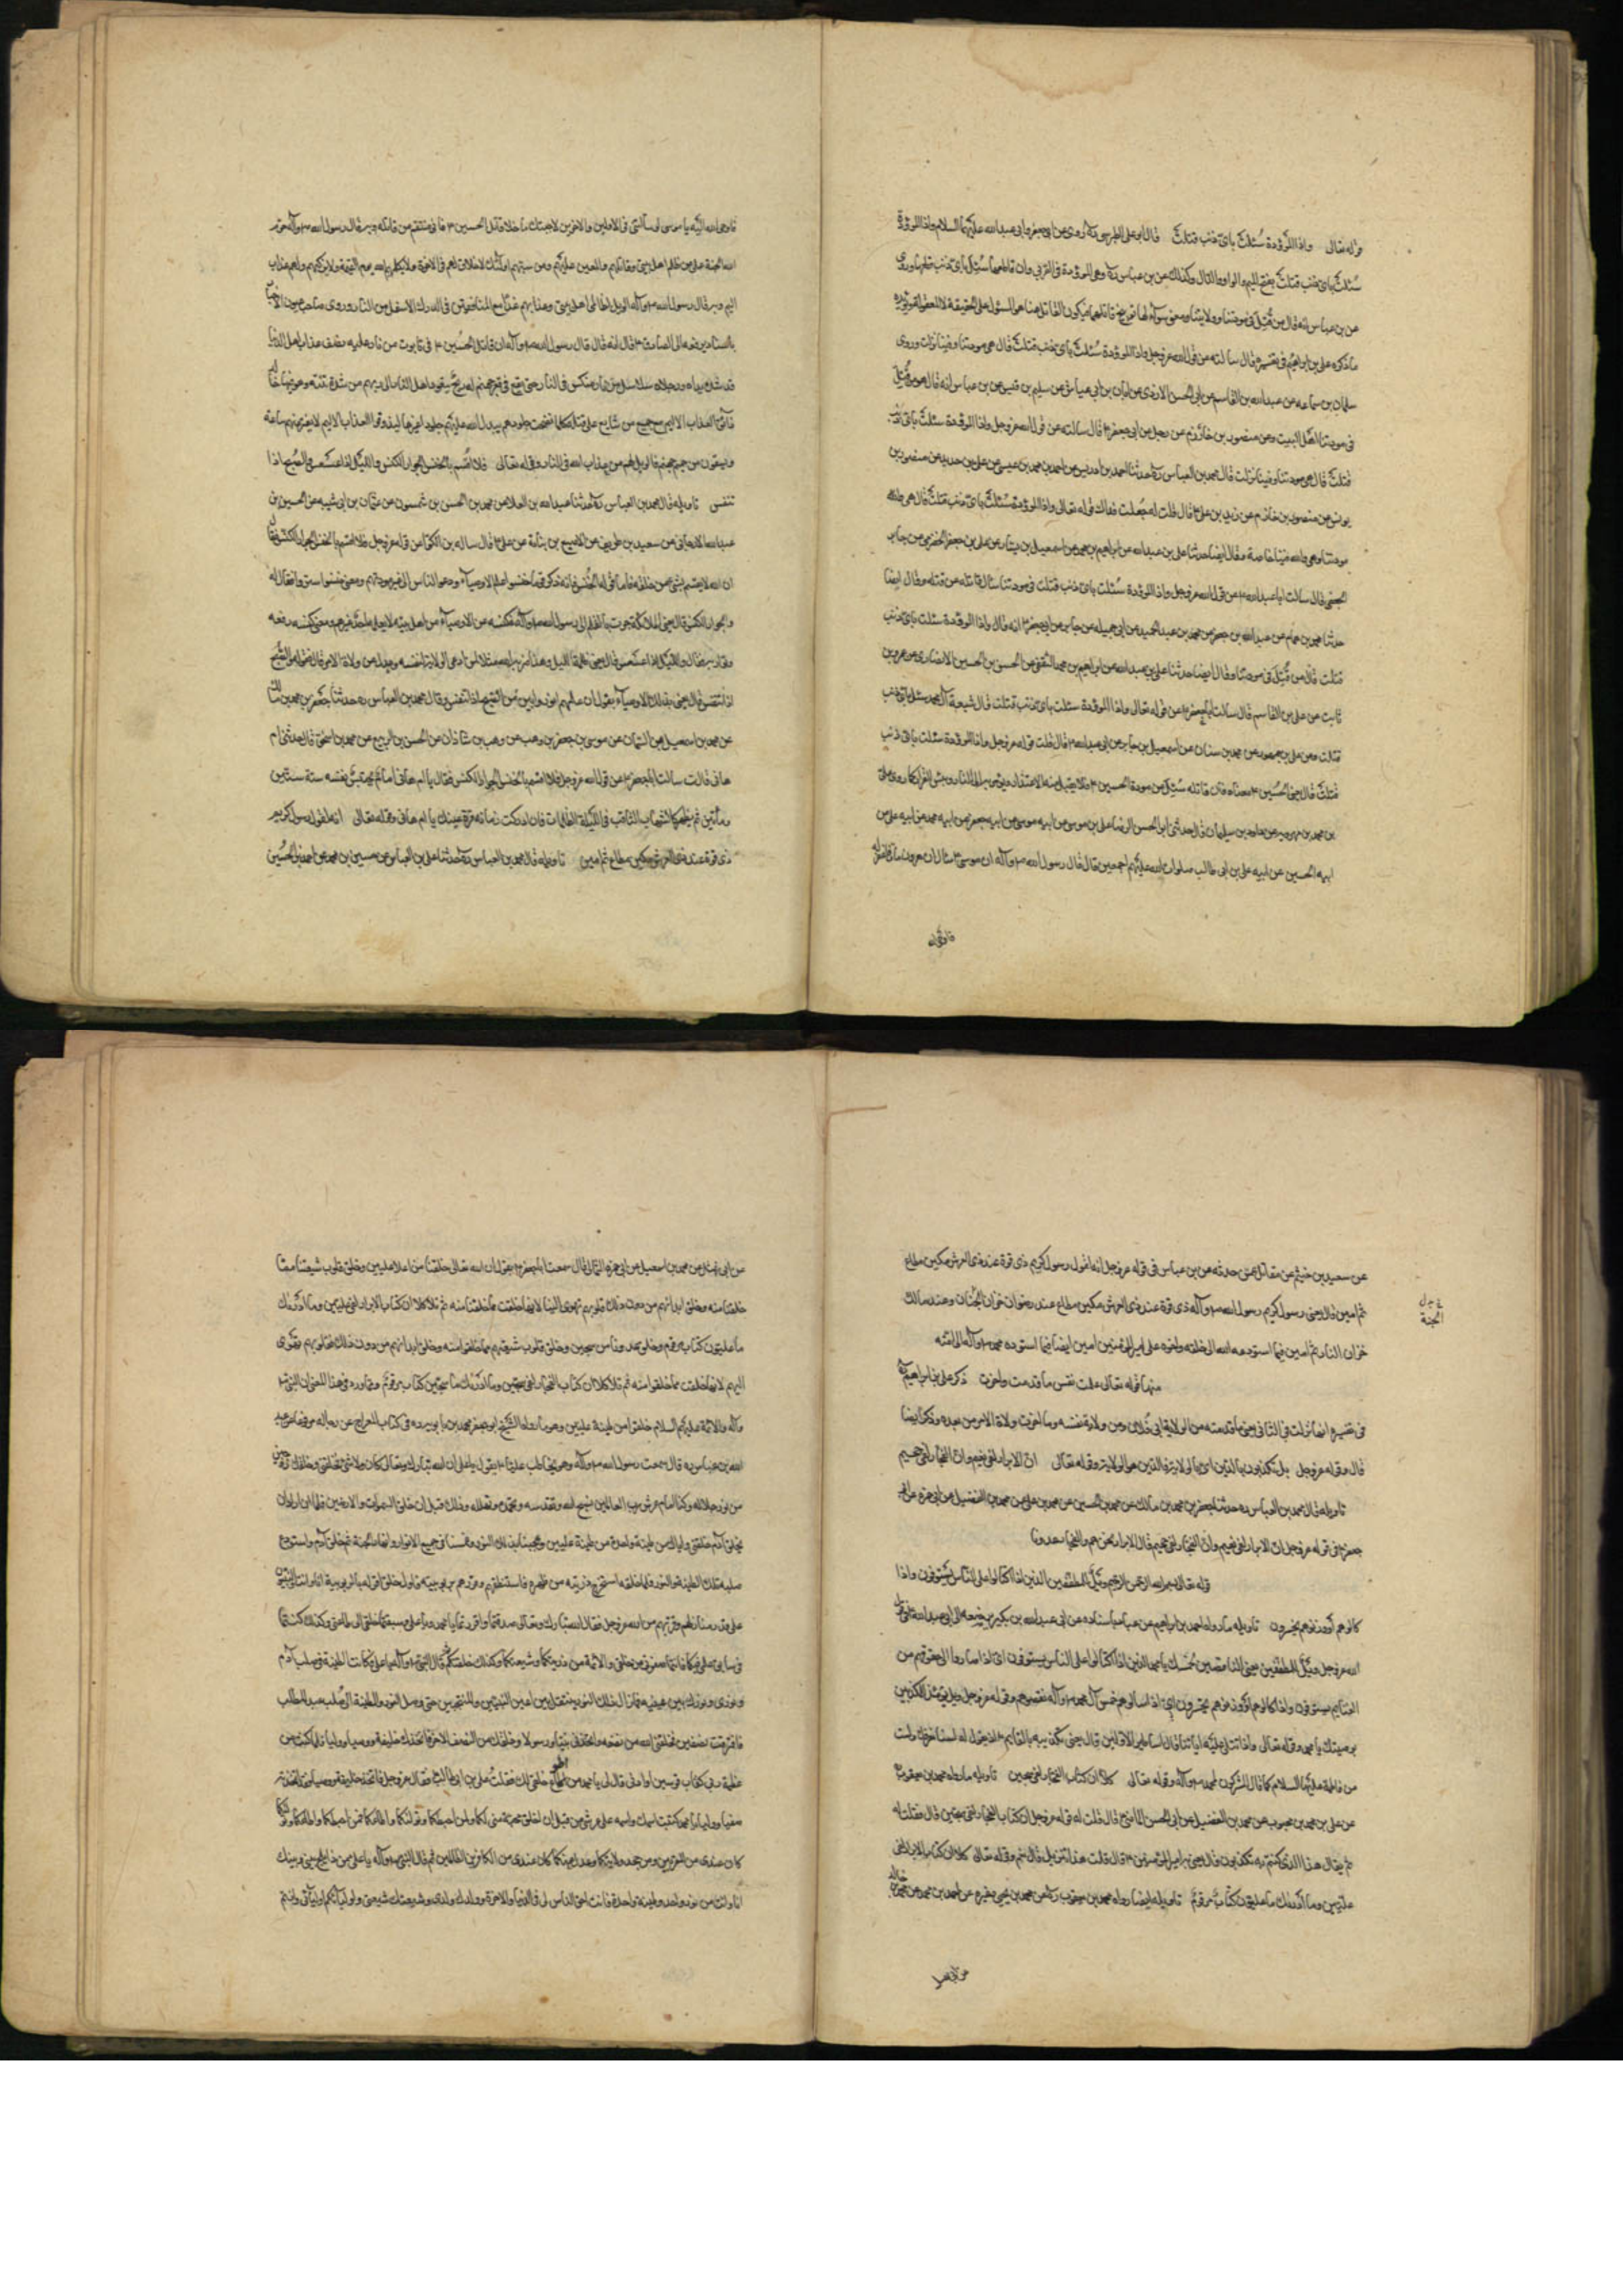 قوله تعالى واذا الموؤدة سُئلتْ باى ذنب قتلتْ قال ابو على الطبرسى ره روى عن ابى جعفر وابى عبدالله عليهما السلام واذا الموَدّة
سُئلتْ باى ذنب قتلتْ بفتح الميم والواو والدال وكذلك عن بن عباس ره وهى المودة فى القربى وان قاطعها سُئِل باى ذنب قطعها وروى
عن بن عباس انه قال من قُتِل فى مودتنا وولايتنا ومعنى سؤالها توبيخ قاتلها
ما ذكره على بن ابراهيم فى تفسيره قال سالته عن قول الله عزوجل واذا الموؤدة سُئلتْ باى ذنب قتلتْ قال هى مودتنا وفينا نزلت وروى
سلمان بن سماعه عن عبدالله بن القاسم عن ابى الحسن الازدى عن ابان بن ابى عياش عن سليم بن قيس عن بن عباس انه قال هو من قُتِل
فى مودتنا اهل البيت وعن منصور بن حازم عن رجل عن ابى جعفر ع قال سالته عن قول الله عزوجل واذا الموؤدة سئلت باى ذنب
قُتلتْ قال هى مودتنا وفينا نزلت قال محمد بن العباس ره حدثنا احمد بن ادريس عن احمد بن محمد بن عيسى عن على بن حديد عن منصور بن
يونس عن منصور بن حازم عن زيد بن على ع قال قلت له جُعلت فداك قوله تعالى واذا الموؤدة سُئلتْ باى ذنب قتلتْ قال هى والله
مودتنا وهى والله فينا خاصة وقال ايضا حدثنا على بن عبدالله عن ابراهيم بن محمد عن اسمعيل بن يسار عن على بن جعفر الحضرمى عن جابر
الجعفى قال سالت ابا عبدالله ع عن قول الله عزوجل واذا الموؤدة سُئلت باى ذنب قتلت قال من قتل فى مودتنا سئل قاتله عن قتله وقال ايضا
حدثنا محمد بن همام عن عبدالله بن جعفر عن محمد بن عبد الحميد عن ابى جميله عن جابر عن ابى جعفر ع انه قال واذا الموؤدة سئلت باى ذنب
قتلت قال من قُتِل فى مودتنا وقال ايضا حدثنا على بن عبدالله عن ابراهيم بن محمد الثقفى عن الحسن بن الحسين الانصارى عن عمرو بن
ثابت عن على بن القاسم قال سالت ابا جعفر ع عن قوله تعالى واذا الموؤدة سئلت باى ذنب قتلت قال شيعة آل محمد تسئل باى ذنب
قتلت وعن على بن جمهور عن محمد بن سنان عن اسمعيل بن جابر عن ابى عبدالله ع قال قلت قوله عزوجل واذا الموؤدة سئلت باى ذنب
قتلتْ قال يعنى الحُسين ع
بن محمد بن مهرويه عن داود بن سليمان قال حدثنى ابو الحسن الرضا على بن موسى عن ابيه موسى عن ابيه جعفر عن ابيه محمد عن ابيه على عن
ابيه الحسين عن ابيه على بن ابى طالب صلوات الله عليهم اجمعين قال قال رسول الله ص وآله ان موسى ع سال
فاوحى الله
فاوحى الله اليه يا موسى لو سالتنى فى الاولين والاخرين لاجبتك ما خلا قاتل الحسين ع فانى منتقم من قاتله وبه قال رسول الله ص وآله حرّم
الله الجنة على من ظلم اهل بيتى وقاتلهم والمعين عليهم ومن سبّهم اولئك لا خلاق لهم فى الاخرة ولا يكلمهم الله يوم القيمة ولا يزكيهم ولهم عذاب
اليم وبه قال رسول الله ص وآله الويل لظالمى اهل بيتى وعذابهم غدا مع المنافقين فى الدرك الاسفل من النار وروى صاحب عيون الاخبار
باسناده يرفعه الى الصادق ع قال انه قال قال رسول الله ص وآله ان قاتل الحُسين ع فى تابوت من نار عليه نصف عذاب اهل الدنيا
قد شدت يداه ورجلاه بسلاسل من نار منكس فى النار حتى يقع فى قعر جهنم وله ريح يتعوذ اهل النار الى ربهم من شدة نتنه وهو فيها خالد
ذائق العذاب الاليم مع جميع من شايع على قتله كلما نضجت جلودهم بدل الله عليهم جلودا غيرها ليذوقوا العذاب الاليم لا يفتر عنهم ساعة
ويسقون من حميم جهنم فالويل لهم من عذاب الله فى النار وقوله تعالى فلا اُقسم بالخنس الجوار الكنس والليل اذا عسعس والصبح اذا
تنفس تاويله قال محمد بن العباس ره حدثنا عبدالله بن العلاء عن محمد بن الحسن بن شمون عن عثمان بن ابى شيبه عن الحسين بن
عبدالله الارجانى عن سعيد بن طريف عن الاصبغ بن نباتة عن على ع قال ساله بن الكوّا عن قوله عزوجل فلا اقسم بالخنس الجوار الكنس فقال
ان الله لا يقسم بشىء من خلقه فاما قوله الخنس فانه ذكر قوما خنسوا علم الاوصياء ودعوا الناس الى غير مودتهم ومعنى خنسوا ستروا فقال له
والجوار الكنس قال يعنى الملائكة جرت بالعلم الى رسول الله ص وآله فكنسه عن الاوصياء من اهل بيته لا يعلمه احد غيرهم ومعنى كنسه رفعه
وتوارى به قال والليل اذا عسعس قال يعنى ظلمة الليل وهذا ضربه الله مثلا لمن ادعى الولاية لنفسه وعدل عن ولاة الامر قال فقوله والصبح
اذا تنفس قال يعنى بذلك الاوصياء يقول ان علمهم انور وابين من الصبح اذا تنفس وقال محمد بن العباس ره حدثنا جعفر بن محمد بن مالك
عن محمد بن اسمعيل بن السمان عن موسى بن جعفر بن وهب عن وهب بن شاذان عن الحسن بن الربيع عن محمد بن اسحق قال حدثتنى ام
هانى قالت سالت ابا جعفر ع عن قول الله عزوجل فلا اقسم بالخنس الجوار الكنس فقال يا ام هانى امام يخنس نفسه سنة ستين
ومأتين ثم يظهر كالشهاب الثاقب فى الليلة الظلماء فان ادركت زمانه قرت عينك يا ام هانى وقوله تعالى انه لقول رسول كريم
ذى قوة عند ذى العرش مكين مطاع ثم امين تاويله قال محمد بن العباس ره حدثنا على بن العباس عن حسين بن محمد عن احمد بن الحُسين
عن سعيد بن خيثم عن مقاتل عمن حدثه عن بن عباس فى قوله عزوجل انه لقول رسول كريم ذى قوة عند ذى العرش مكين مطاع
ثم امين قال يعنى رسول كريم رسول الله ص وآله ذى قوة عند ذى العرش مكين مطاع عند رضوان خازن الجنان وعند مالك
الجنة
خزان النار ثم امين فيما استودعه الله الى خلقه واخوه على امير المؤمنين امين ايضا فيما استودعه محمد ص وآله الى امته
منها قوله تعالى علمت نفس ما قدمت واخرت ذكر على بن ابراهيم
فى تفسيره انها نزلت فى الثانى يعنى ما قدمته من الولاية ابى فلان ومن ولاية نفسه وما اخرت ولاة الامر من بعده وذكر ايضا
قال وقوله عزوجل بل تكذبون بالدّين اى بالولاية فالدّين هو الولاية وقوله تعالى انّ الابرار لفى نعيم وانّ الفجّار لفى جحيم
تاويله قال محمد بن العباس ره حدثنا جعفر بن محمد بن مالك عن محمد بن الحسين عن محمد بن على عن محمد بن الفضيل عن ابى حمزه عن ابى
جعفر ع فى قوله عزوجل ان الابرار لفى نعيم وانّ الفجار لفى جحيم قال الابرار نحن هم والفجار عدونا
قوله تعالى بسم الله الرحمن الرحيم ويلٌ للمطففين الذين اذا اكتالوا على الناس يستوفون واذا
كالوهم او وزنوهم يُخسِرون تاويله ما رواه احمد بن ابراهيم عن عباد باسناده عن عبدالله بن بكير يرفعه الى ابى عبدالله ع فى قول
الله عزوجل ويلٌ للمطففين يعنى الناقصين لخُمسك يا محمد الذين اذا اكتالوا على الناس يستوفون اى اذا صاروا الى حقوقهم من
الغنايم يستوفون واذا كالوهم او وزنوهم يخسرون اى اذا سالوهم خمس آل محمد ص وآله نقصوهم وقوله عزوجل ويل يومئذ للمكذبين
بوصيتك يا محمد وقوله تعالى واذا تتلى عليه اياتنا قال اساطير الاولين قال يعنى تكذيبه بالقايم ع اذ يقول له لسنا نعرفك ولست
من فاطمة عليها السلام كما قال المشركون لمحمد ص وآله وقوله تعالى كلا ان كتاب الفجّار لفى سجين تاويله ما رواه محمد بن يعقوب
عن على بن محمد بن محبوب عن محمد بن الفضيل عن ابى الحسن الماضى ع قال قلت له قوله عزوجل ان كتاب الفجار لفى سجين قال
ثم يقال هذا الذى كنتم به تكذبون قال يعنى امير المؤمنين ع قال قلت هذا تنزيل قال نعم وقوله تعالى كلا ان كتاب الابرار لفى
علّيين وما ادراك ما عليون كتابٌ مرقومٌ تاويله ايضا رواه محمد بن يعقوب ره عن محمد بن يحيى وغيره عن احمد بن محمد
عن ابى نهشل عن محمد بن اسمعيل عن ابى حمزه الثمالى قال سمعت ابا جعفر ع يقول ان الله تعالى خلقنا من اعلا عليين وخلق قلوب شيعتنا مما
خلقنا منه وخلق ابدانهم من دون ذلك فقلوبهم تهوى الينا لانها خلقت مما خلقنا منه ثم تلا كلا ان كتاب الابرار لفى عليين وما ادراك
ما عليون كتاب مرقوم وخلق عدونا من سجين وخلق قلوب شيعتهم مما خلقوا منه وخلق ابدانهم من دون ذلك فقلوبهم تهوى
اليهم لانها خلقت مما خلقوا منه ثم تلا كلا ان كتاب الفجّار لفى سجين وما ادراك ما سجين كتاب مرقوم ومما ورد فى هذا المعنى ان النبى ص
وآله والائمة عليهم السلام خلقوا من طينة عليين وهو ما رواه الشيخ ابو جعفر محمد بن بابويه ره فى كتاب المعراج عن رجاله مرفوعا عن عبد
الله بن عباس ره قال سمعت رسول الله ص وآله وهو يخاطب عليا ع يقول يا على ان الله تبارك وتعالى كان ولا شىء معه فخلقنى وخلقك روحين
من نور جلاله وكنا امام عرش رب العالمين نسبح الله ونقدسه ونحمده ونهلله وذلك قبل ان خلق السموات والارضين فلما اراد ان
يخلق آدم خلقنى واياك من طينة واحدة من طينة عليين وعجننا بذلك النور وغمسنا فى جميع الانوار وانهار الجنة ثم خلق آدم واستودع
صلبه تلك الطينة والنور فلما خلقه استخرج ذريته من ظهره فاستنطقهم وقررهم بربوبيته فاول خلق اقر له بالربوبية انا وانت والنبيون
على قدر منازلهم وقربهم من الله عزوجل فقال الله تبارك وتعالى صدقتما واقررتما يا محمد ويا على وسبقتما خلقى الى طاعتى وكذلك كنتما
فى سابق علمى فيكما فانتما صفوتى من خلقى والائمة من ذريتكما وشيعتكما وكذلك خلقتكم ثم قال النبى ص وآله يا على فكانت الطينة فى صلب آدم
ونورى ونورك بين عينيه فما زال ذلك النور ينتقل بين اعين النبيين والمنتجبين حتى وصل النور والطينة الى صلب عبد المطلب
فافترقت نصفين فخلقنى الله من نصفه واتخذنى نبيا ورسولا وخلقك من النصف الاخر فاتخذك خليفة ووصيا ووليا فلما كنت من
عظمة ربى كقاب قوسين او ادنى قال لى يا محمد من اطوع خلقى لك فقلت على بن ابى طالب فقال عزوجل فاتخذه خليفة ووصيا فقد اتخذته
صفيا ووليا يا محمد كتبت اسمك واسمه على عرشى من قبل ان اخلق خلقى محبة منى لكما ولمن احبكما وتولاكما واطاعكما فمن احبكما واطاعكما وتولاكما
كان عندى من المقربين ومن جحد ولايتكما وعدل عنكما كان عندى من الكافرين الظالمين ثم قال النبى ص وآله يا على فمن ذا يلج بينى وبينك
انا وانت من نور واحد وطينة واحدة فانت احق الناس بى فى الدنيا والاخرة وولدك ولدى وشيعتك شيعتى واولياؤكم اوليائى وانتم